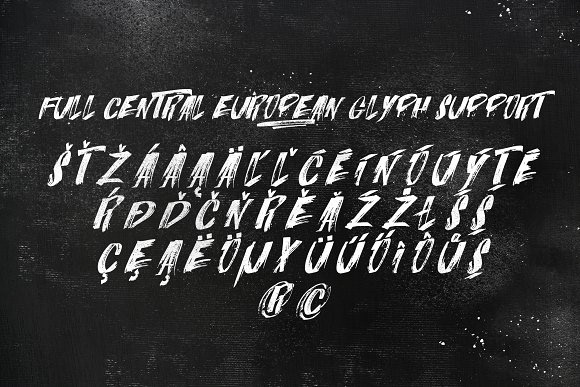 FULL CENTRAL EUROPEAN GLYPH SUPPORT
Š Ť Ž Á Â Ą Ä Ľ Ľ Ć É Í Ń Ó Ú Ý Ţ E
Ŕ Đ Ď Č Ň Ř Ě Ă Ź Ż Ł Ś Ş
Ç Ę Ą Ë Ö µ X Ü Ű Ő î Ô Ů Ş
® ©